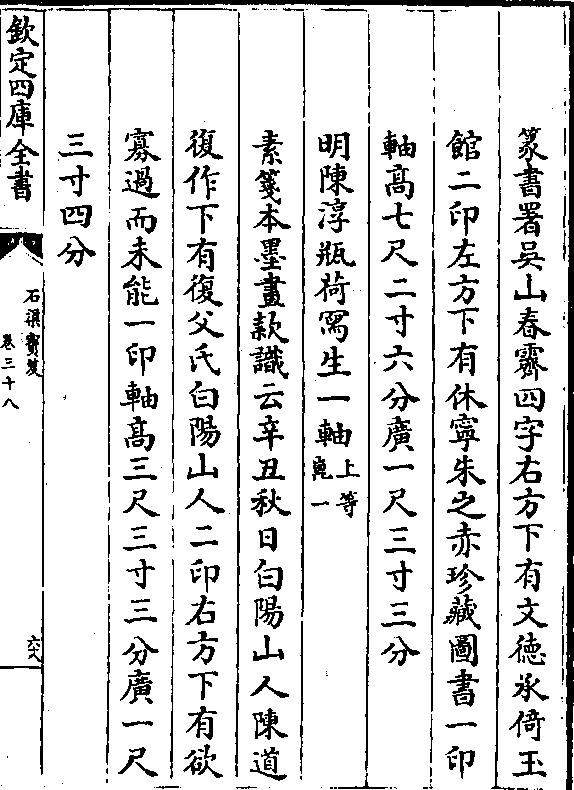 篆書署吳山春霽四字右方下有文徳承倚玉
館二印左方下有休寧朱之赤珍藏圖書一印
軸高七尺二寸六分廣一尺三寸三分
明陳淳瓶荷寫生一軸上等
亮一
素箋本墨畫款識云辛丑秋日白陽山人陳道
復作下有復父氏白陽山人二印右方下有欲
寡過而未能一印軸高三尺三寸三分廣一尺
三寸四分
欽定四庫全書
石渠寳笈
卷三十八
六